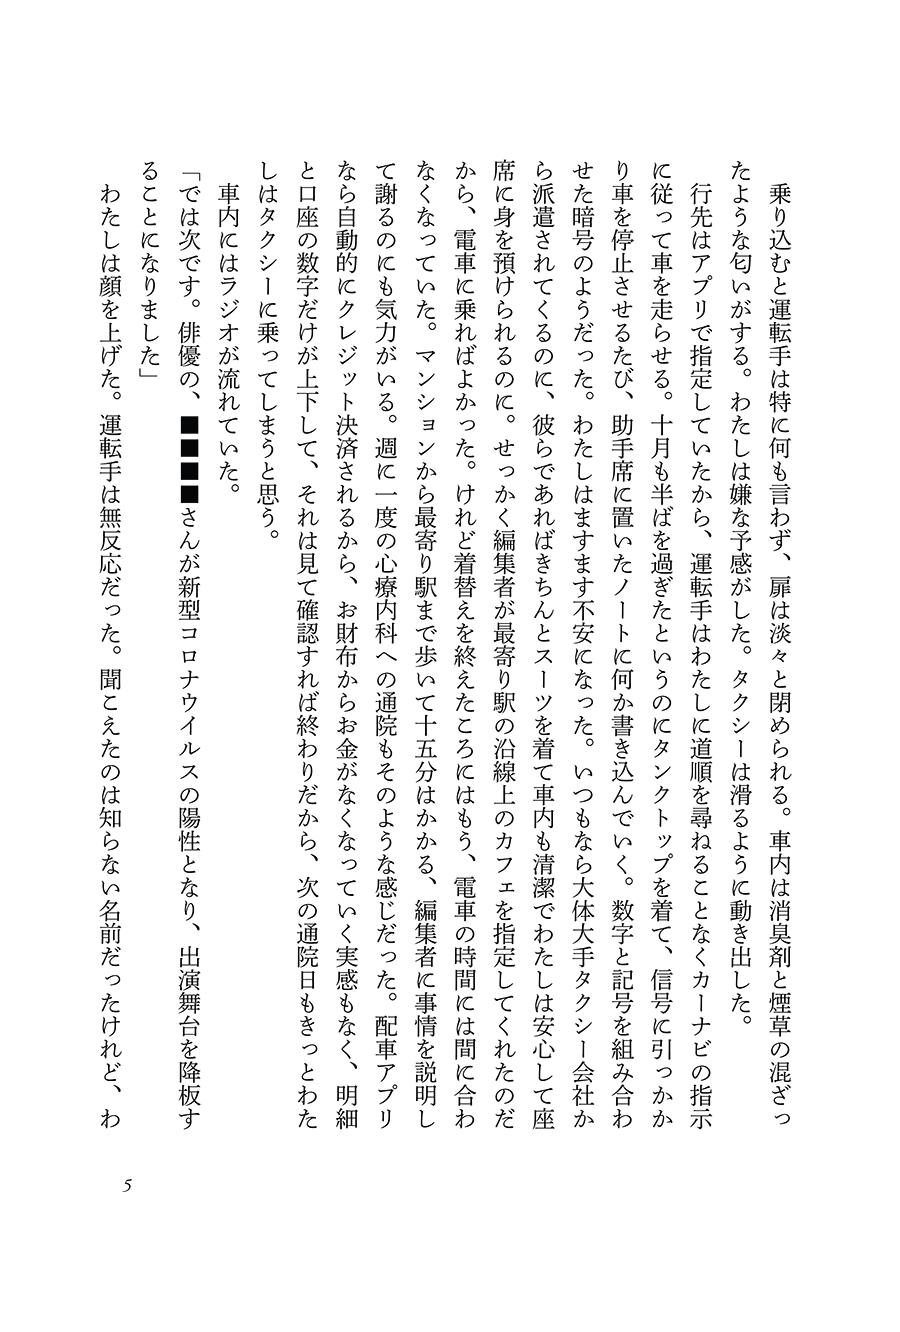 乗り込むと運転手は特に何も言わず、扉は淡々と閉められる。車内は消臭剤と煙草の混ざっ
たような匂いがする。わたしは嫌な予感がした。タクシーは滑るように動き出した。
　行先はアプリで指定していたから、運転手はわたしに道順を尋ねることなくカーナビの指示
に従って車を走らせる。十月も半ばを過ぎたというのにタンクトップを着て、信号に引っかか
り車を停止させるたび、助手席に置いたノートに何か書き込んでいく。数字と記号を組み合わ
せた暗号のようだった。わたしはますます不安になった。いつもなら大体大手タクシー会社か
ら派遣されてくるのに、彼らであればきちんとスーツを着て車内も清潔でわたしは安心して座
席に身を預けられるのに。せっかく編集者が最寄り駅の沿線上のカフェを指定してくれたのだ
から、電車に乗ればよかった。けれど着替えを終えたころにはもう、電車の時間には間に合わ
なくなっていた。マンションから最寄り駅まで歩いて十五分はかかる、編集者に事情を説明し
て謝るのにも気力がいる。週に一度の心療内科への通院もそのような感じだった。配車アプリ
なら自動的にクレジット決済されるから、お財布からお金がなくなっていく実感もなく、明細
と口座の数字だけが上下して、それは見て確認すれば終わりだから、次の通院日もきっとわた
しはタクシーに乗ってしまうと思う。
　車内にはラジオが流れていた。
「では次です。俳優の、■■■■さんが新型コロナウイルスの陽性となり、出演舞台を降板す
ることになりました」
　わたしは顔を上げた。運転手は無反応だった。聞こえたのは知らない名前だったけれど、わ
5